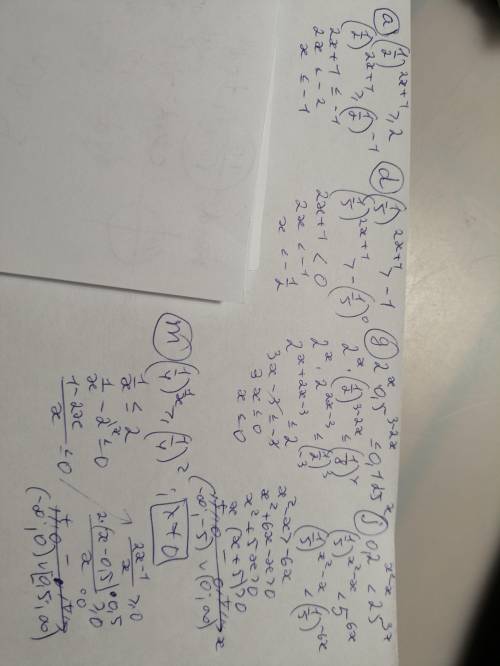 a) (1/2)^{2x+1} ≥ 2
(1/2)^{2x+1} ≥ (1/2)^{-1}
2x+1 ≤ -1
2x ≤ -2
x ≤ -1
d) (1/5)^{2x+1} > -1
(1/5)^{2x+1} > -(1/5)^0
2x+1 < 0
2x < -1
x < -1/2
g) 2^x · 0,5^{3-2x} ≤ 0,125
2^x · (1/2)^{3-2x} ≤ (1/8)^1
2^x · 2^{2x-3} ≤ (1/2)^3
2^{x+2x-3} ≤ 2
3x - 3 ≤ -3
3x ≤ 0
x ≤ 0
j) 0,2^{x²-x} < 25^{3x}
(1/5)^{x²-x} < 5^{6x}
(1/5)^{x²-x} < (1/5)^{-6x}
x²-x > -6x
x²+6x-x > 0
x²+5x > 0
x(x+5) > 0
(-∞; -5) ∪ (0; ∞)
m) (1/4)^{1/x} ≥ (1/4)^2 ; x ≠ 0
1/x ≤ 2
1/x - 2 ≤ 0
1-2x/x ≤ 0
2x-1/x ≥ 0
2·(x-0,5)/x ≥ 0
0,5
0
(-∞; 0) ∪ (0,5; ∞)